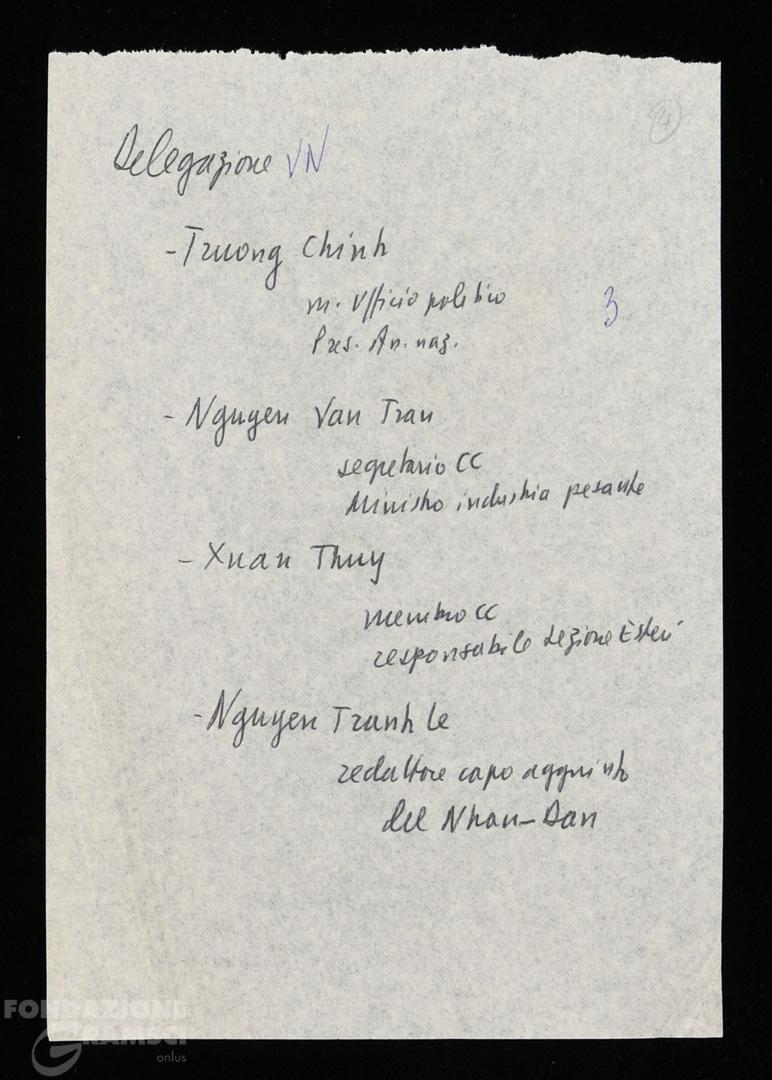 4
Delegazione VN
- Truong Chinh
m. Ufficio politico
3
Pres. An. naz.
- Nguyen Van Tran
segretario CC
Ministro industria pesante
- Xuan Thuy
membro CC
responsabile sezione Esteri
- Nguyen Tranh Le
redattore capo aggiunto
del Nhan-Dan
FONDAZIONE
GRAMSCI
onlus